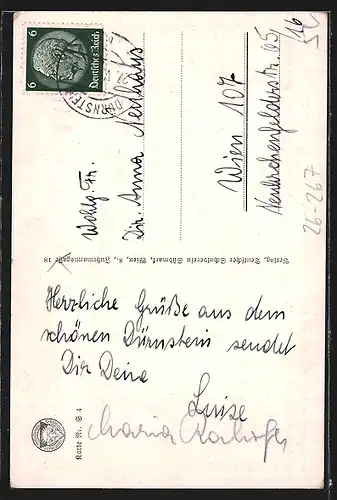 6 Deutsches Reich 6
DÜRNSTEIN
16
Wohlg. Fr.
Dir. Anna
Wien 107
Neulerchenfelderstr. 65
26-267
Verlag, Deutscher Schulverein Südmark, Wien, 8., Fuhrmannsgasse 18
Herzliche Grüße aus dem
schönen Dürnstein sendet
Dir Deine
Luise
Maria
Karte Nr. G 4